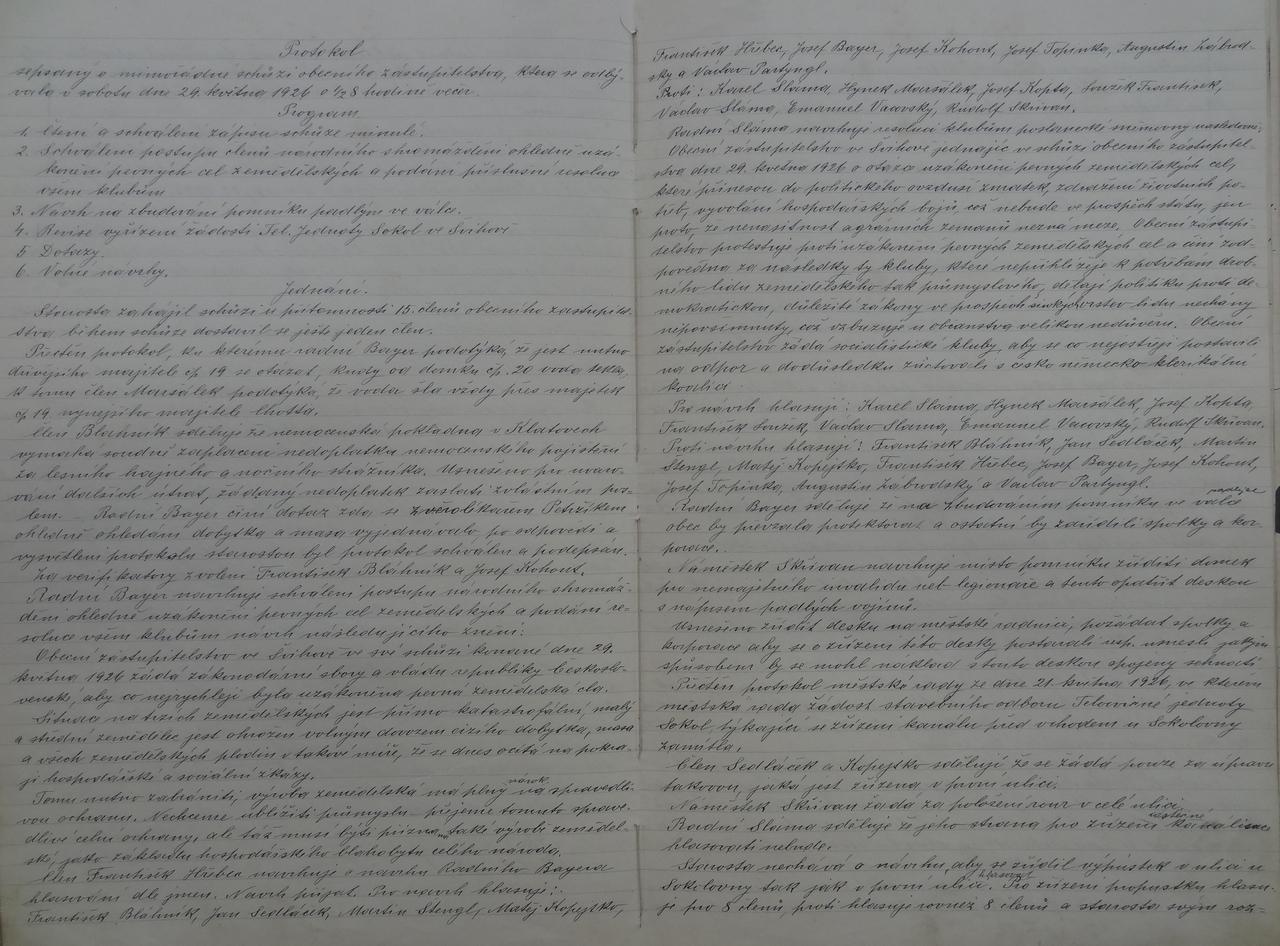 Protokol
sepsaný o mimořádné schůzi obecního zastupitelstva, která se odbý-
vala v sobotu dne 29. května 1926 o ½8 hodině večer.
Program
1. Čtení a schválení zápisu schůze minulé.
2. Schválení postupu členů národního shromáždění ohledně uzá-
konění pevných cel zemědělských a podání příslušné resoluce
všem klubům
3. Návrh na zbudování pomníku padlým ve válce.
4. Revise vyřízení žádosti Tel. Jednoty Sokol ve Švihově
5. Dotazy.
6. Volné návrhy.
Jednání.
Starosta zahájil schůzi u přítomnosti 15. členů obecního zastupitel-
stva během schůze dostavil se ještě jeden člen.
Přečten protokol, ku kterému radní Bayer podotýká, že jest nutno
dřívejšího majitele čp. 19 se otázat, kudy od domku čp. 20 voda tekla,
k tomu člen Maršálek podotýká, že voda šla vždy přes majetek
čp 19. nynejšího majitele Lhotta.
Člen Bláhník sděluje že nemocenská pokladna v Klatovech
vymáhá soudně zaplacení nedoplatku nemocenského pojištění
za lesního hajného a nočního strážníka. Usneseno pro uvaro-
vání dalších útrat, žádaný nedoplatek zaslati zvláštním pos-
lem. – Radní Bayer činí dotaz zda se zverolékařem Petržíkem
ohledně ohledání dobytka a masa vyjednávalo, po odpovědi a
vysvětlení protokolu starostou byl protokol schválen a podepsán.
Za verifikátory zvoleni František Bláhník a Josef Kohout.
Radní Bayer navrhuje schválení postupu národního shromáž-
dění ohledně uzákonění pevných cel zemědělských a podání re-
soluce všem klubům návrh následujícího znění:
Obecní zastupitelstvo ve Švihově ve své schůzi konané dne 29.
května 1926 žádá zákonodárné sbory a vládu republiky Českoslo-
venské, aby co nejrychleji byla uzákoněna pevná zemědělská cla.
Situace na trzích zemědělských jest přímo katastrofální, malý
a střední zemědělec jest ohrožen volným dovozem cizího dobytka, masa
a všech zemědělských plodin v takové míře, že se dnes ocitá na pokra-
ji hospodářské a sociální zkázy.
Tomu nutno zabrániti, výroba zemědělská má plný nárok na spravedli-
vou ochranu. Nechceme ublížiti průmyslu – přejeme tomuto sprave-
dlivé celní ochrany, ale táž musí býti přiznána také výrobě zeměděl-
ské, jako základu hospodářského blahobytu celého národa.
Člen František Hřebec navrhuje o návrhu Radního Bayera
hlasování dle jmen. Návrh přijat. Pro návrh hlasují:
František Bláhník, Jan Sedláček, Martin Stengl, Matěj Kopejtko,
František Hřebec, Josef Bayer, Josef Kohout, Josef Topinka, Augustin Zábrod-
ský a Václav Partyngl.
Proti: Karel Sláma, Hynek Maršálek, Josef Kopta, Součzek František,
Václav Sláma, Emanuel Vacovský, Rudolf Skřivan.
Radní Sláma navrhuje resoluci klubům poslanecké sněmovny následovní:
Obecní zastupitelstvo ve Švihově jednajíc ve schůzi obecního zastupitel-
stva dne 29. května 1926 o otázce uzákonění pevných zemědělských cel,
které přinesou do politického ovzduší zmatek, zdražení životních po-
třeb, vyvolání hospodářských bojů, což nebude ve prospěch státu, jen
proto, že nenasitnost agrárních zemanů nezná meze. Obecní zastupi-
telstvo protestuje proti uzákonění pevných zemědělských cel a činí zod-
povědna za následky ty kluby, které nepřihlížeje k potřebám drob-
ného lidu zemědělského tak průmyslového, dělají politiku proti de-
mokratickou, důležité zákony ve prospěch širokých vrstev lidu nechány
nepovšimnuty, což vzbuzuje u občanstva velikou nedůvěru. Obecní
zastupitelstvo žádá socialistické kluby, aby se co nejostřeji postavili
na odpor a do důsledku zúčtovali s česko německo klerikální
koalicí.
Pro návrh hlasují: Karel Sláma, Hynek Maršálek, Josef Kopta,
František Součzek, Václav Sláma, Emanuel Vacovský, Rudolf Skřivan.
Proti návrhu hlasují: František Bláhník, Jan Sedláček, Martin
Stengl, Matěj Kopejtko, František Hřebec, Josef Bayer, Josef Kohout,
Josef Topinka, Augustin Zabrodský a Václav Partyngl.
Radní Bayer sděluje že na zbudováním pomníku ve válce padlým
obec by převzala protektorát a ostatní by zařídili spolky a kor-
porace.
Náměstek Skřivan navrhuje místo pomníku zříditi domek
pro nemajetného invalidu neb legionáře a tento opatřit deskou
s nápisem padlých vojínů.
Usneseno zřídit desku na městské radnici, požádat spolky a
korporace aby se o zřízení této desky postarali resp. usnesli jakým
způsobem by se mohl náklad s touto deskou spojený sehnati
Přečten protokol městské rady ze dne 21. května 1926, ve kterém
městská rada žádost stavebního odboru Tělocvičné jednoty
Sokol, týkající se zřízení kanálu před vchodem u Sokolovny
zamítla.
Člen Sedláček a Kopejtko sdělují že se žádá pouze za úpravu
takovou, jaká jest zřízena v první ulici.
Náměstek Skřivan žádá za položení rour v celé ulici.
Radní Sláma sděluje že jeho strana pro zřízení částečné kanalisace
hlasovati nebude.
Starosta nechává o návrhu, aby se zřídil výpustek v ulici u
Sokolovny tak jak v první ulici hlasovat. Pro zřízení propustku hlasu-
je pro 8 členů, proti hlasuje rovněž 8 členů a starosta svým roz-